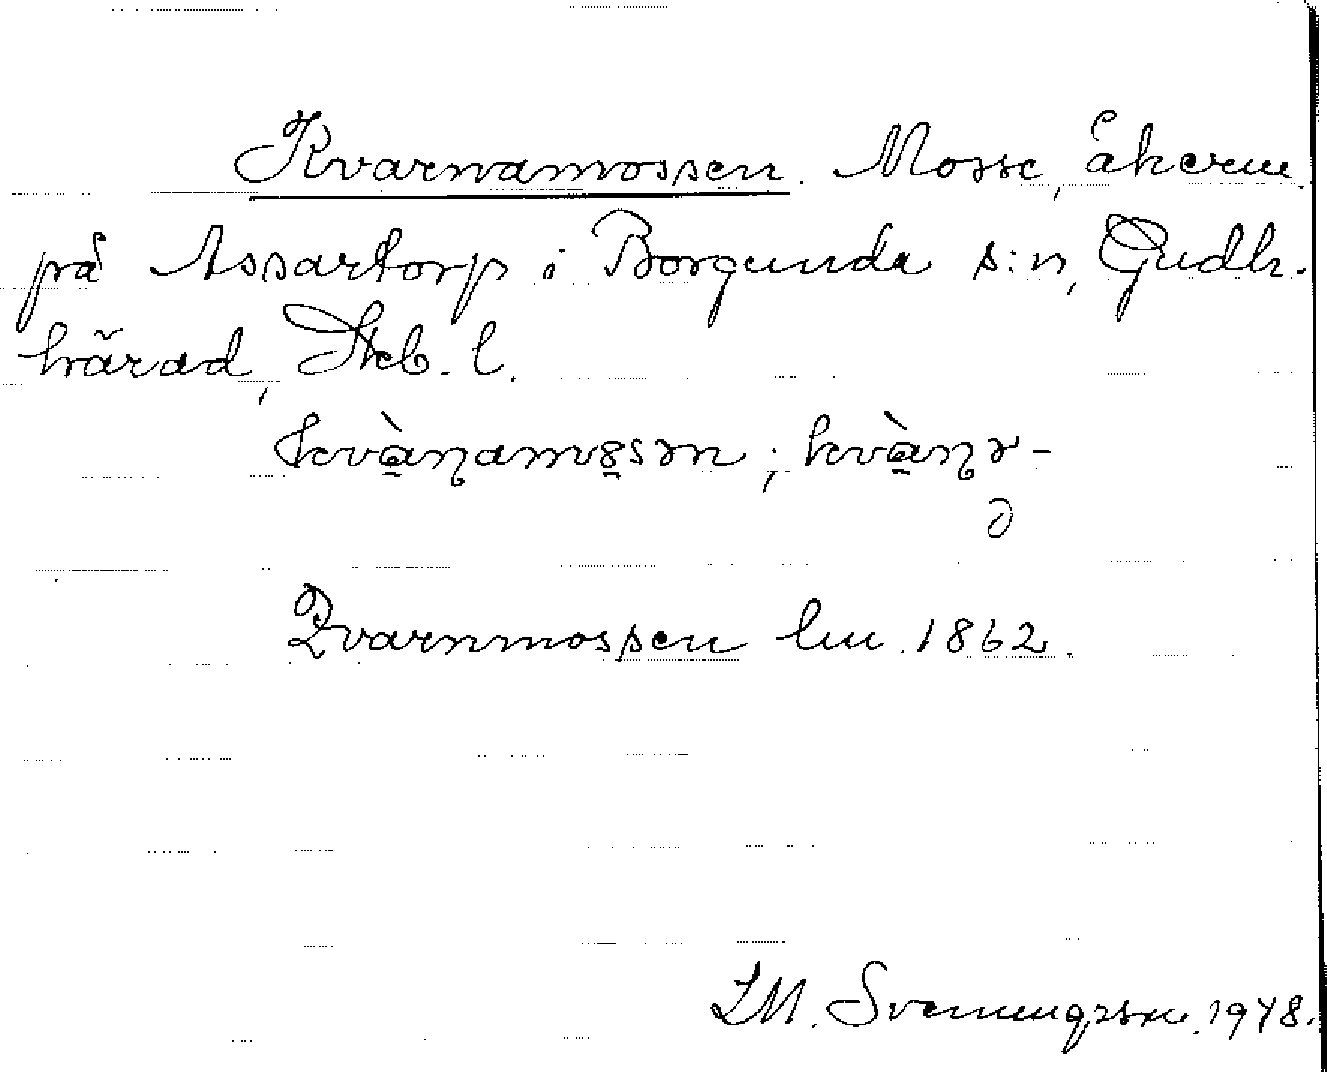 Kvarnamossen. Mosse, åkerm.
på Assartorp i Borgunda s:n, Gudh.
härad, Skb. l.
kvànamo̤sən ; kvànə-
ə
Qvarnmossen lm. 1862.
Svenningsson. 1948.